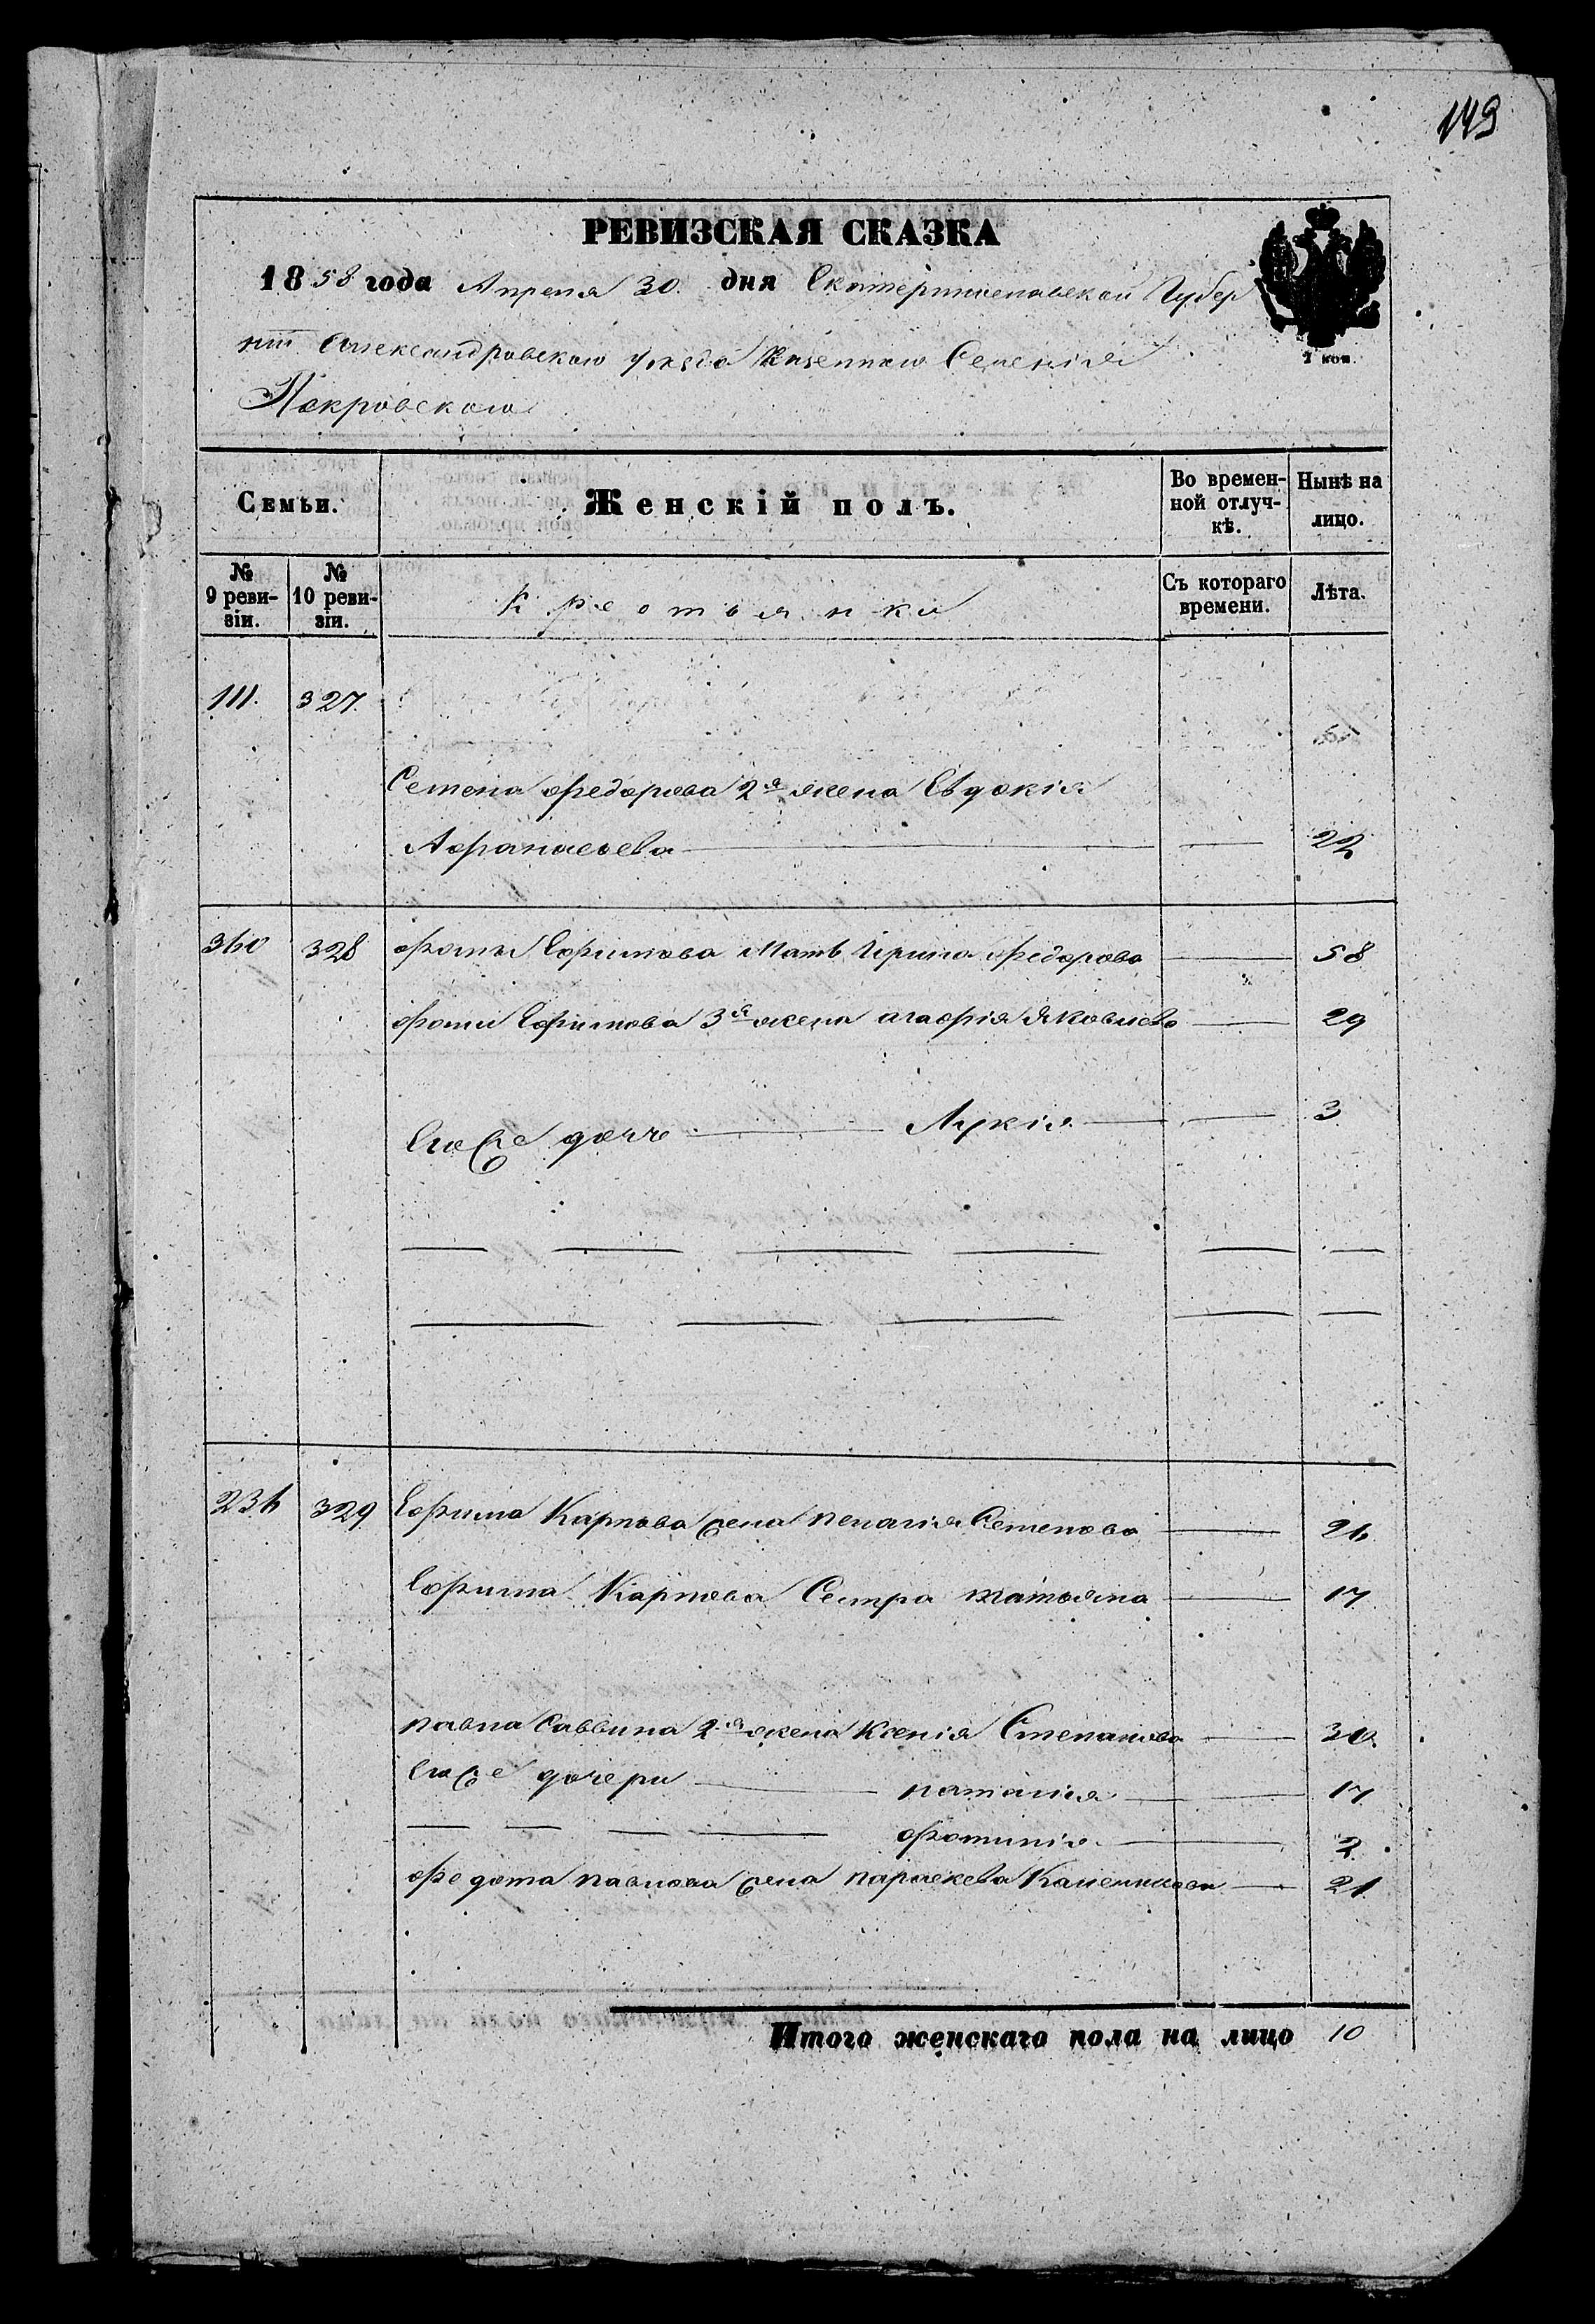 149
РЕВИЗСКАЯ СКАЗКА
1858 года Апреля 30. дня Екатеринославской Губер
нiи Александровского уезда Казенного Селенія
Покровского
Семьи.
Женскій полъ.
Во времен-
ной отлуч-
кѣ.
Нынѣ на
лицо.
№
9 реви-
зіи.
№
10 реви-
зіи.
Крестьянки
Съ котораго
времени.
Лѣта.
111. 327.
Семена Федорова 2я жена Евдокія
Афанасьева 22
360 328 Фомы Ефимова Мать Ирина Федорова 58
Фомы Ефимова 3я жена Агафія Яковлева 29
Его Же дочь Лукія 3
234 329 Ефима Карпова Жена Пелагія Семенова 24
Ефима Карпова Сестра Татьяна 17
Павла Саввина 2я жена Ксенія Степанова 30
Его Же дочери Наталія 17
Фотинія 2
Федота Павлова Жена Параскева 21
Итого женскаго пола на лицо 10